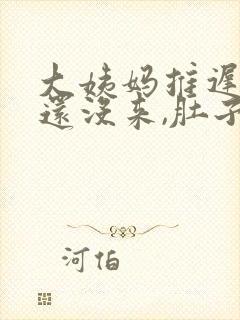 大姨妈推遲
還没来,肚子
河伯